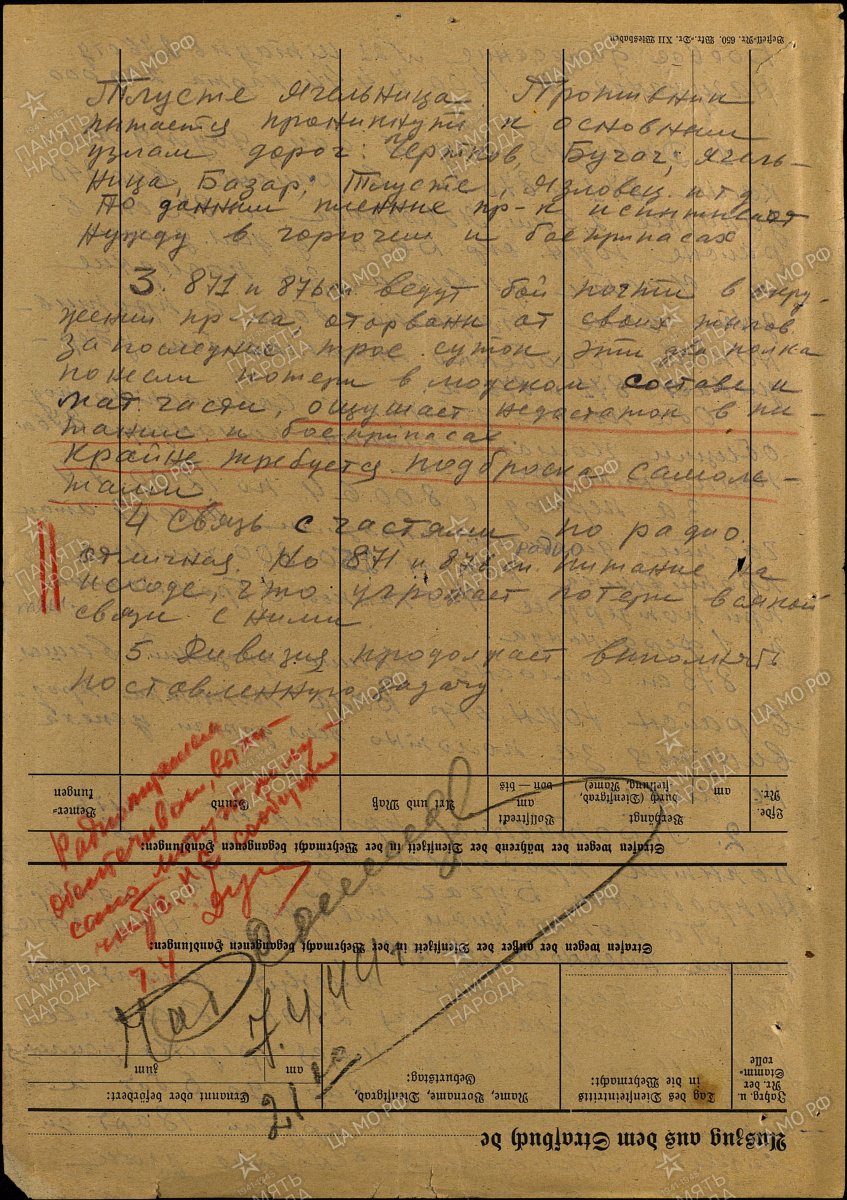 Тлусте Ягельница. Противник
питается проникнути к основним
узлам дорог: Чертков, Бучач; Ягель-
ница, Базар; Тлусте, Язловец и т д
По данним пленние пр-к испитивает
нужду в горючем и боеприпасах
3. 871 и 876 сп ведут бой почти в окру-
жении пр-ка оторвани от своих тилов
За последние трое суток, эти два полка
понесли потери в людском составе и
мат. части, ощущает недостаток в пи-
тании и боеприпасах
Крайне требуется подброска самоле-
тами
4 Связь с частями по радио
отличная. Но 871 и 876 сп радио питание на
исходе, что угрожает потери важной
связи с ними
5 Дивизия продолжает виполнять
поставленную задачу
7.4
7.4.44 г
21
Bestell-Nr. 650. Wkr.-Dr. XII Wiesbaden
Lfde. Nr.
am
Verhängt
durch (Dienstgrad, Name)
Vollstreckt
am
von — bis
Art und Maß
Grund
Bemer-
kungen
Strafen wegen der während der Dienstzeit in der Wehrmacht begangenen Handlungen:
Strafen wegen der außer der Dienstzeit in der Wehrmacht begangenen Handlungen:
Jahrg. u.
Nr. der
Stamm-
rolle
Tag des Diensteintritts
in die Wehrmacht:
Name, Vorname, Dienstgrad,
Geburtstag:
Ernannt oder befördert:
am
zum
Auszug aus dem Strafbuch de
ПАМЯТЬ НАРОДА
ЦАМО.РФ